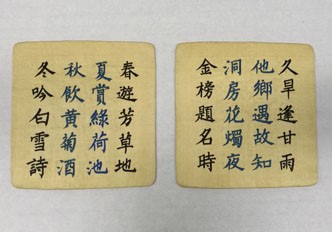 久旱逢甘雨
他鄉遇故知
洞房花燭夜
金榜題名時
春遊芳草地
夏賞綠荷池
秋飲黄菊酒
冬吟白雪詩